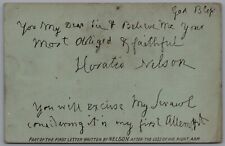 God Bless
You My Dear Sir & Believe Me Your
Most Obliged & faithful
Horatio Nelson
You will excuse My Scrawl
considering it is my first Attempt
PART OF THE FIRST LETTER WRITTEN BY NELSON AFTER THE LOSS OF HIS RIGHT ARM